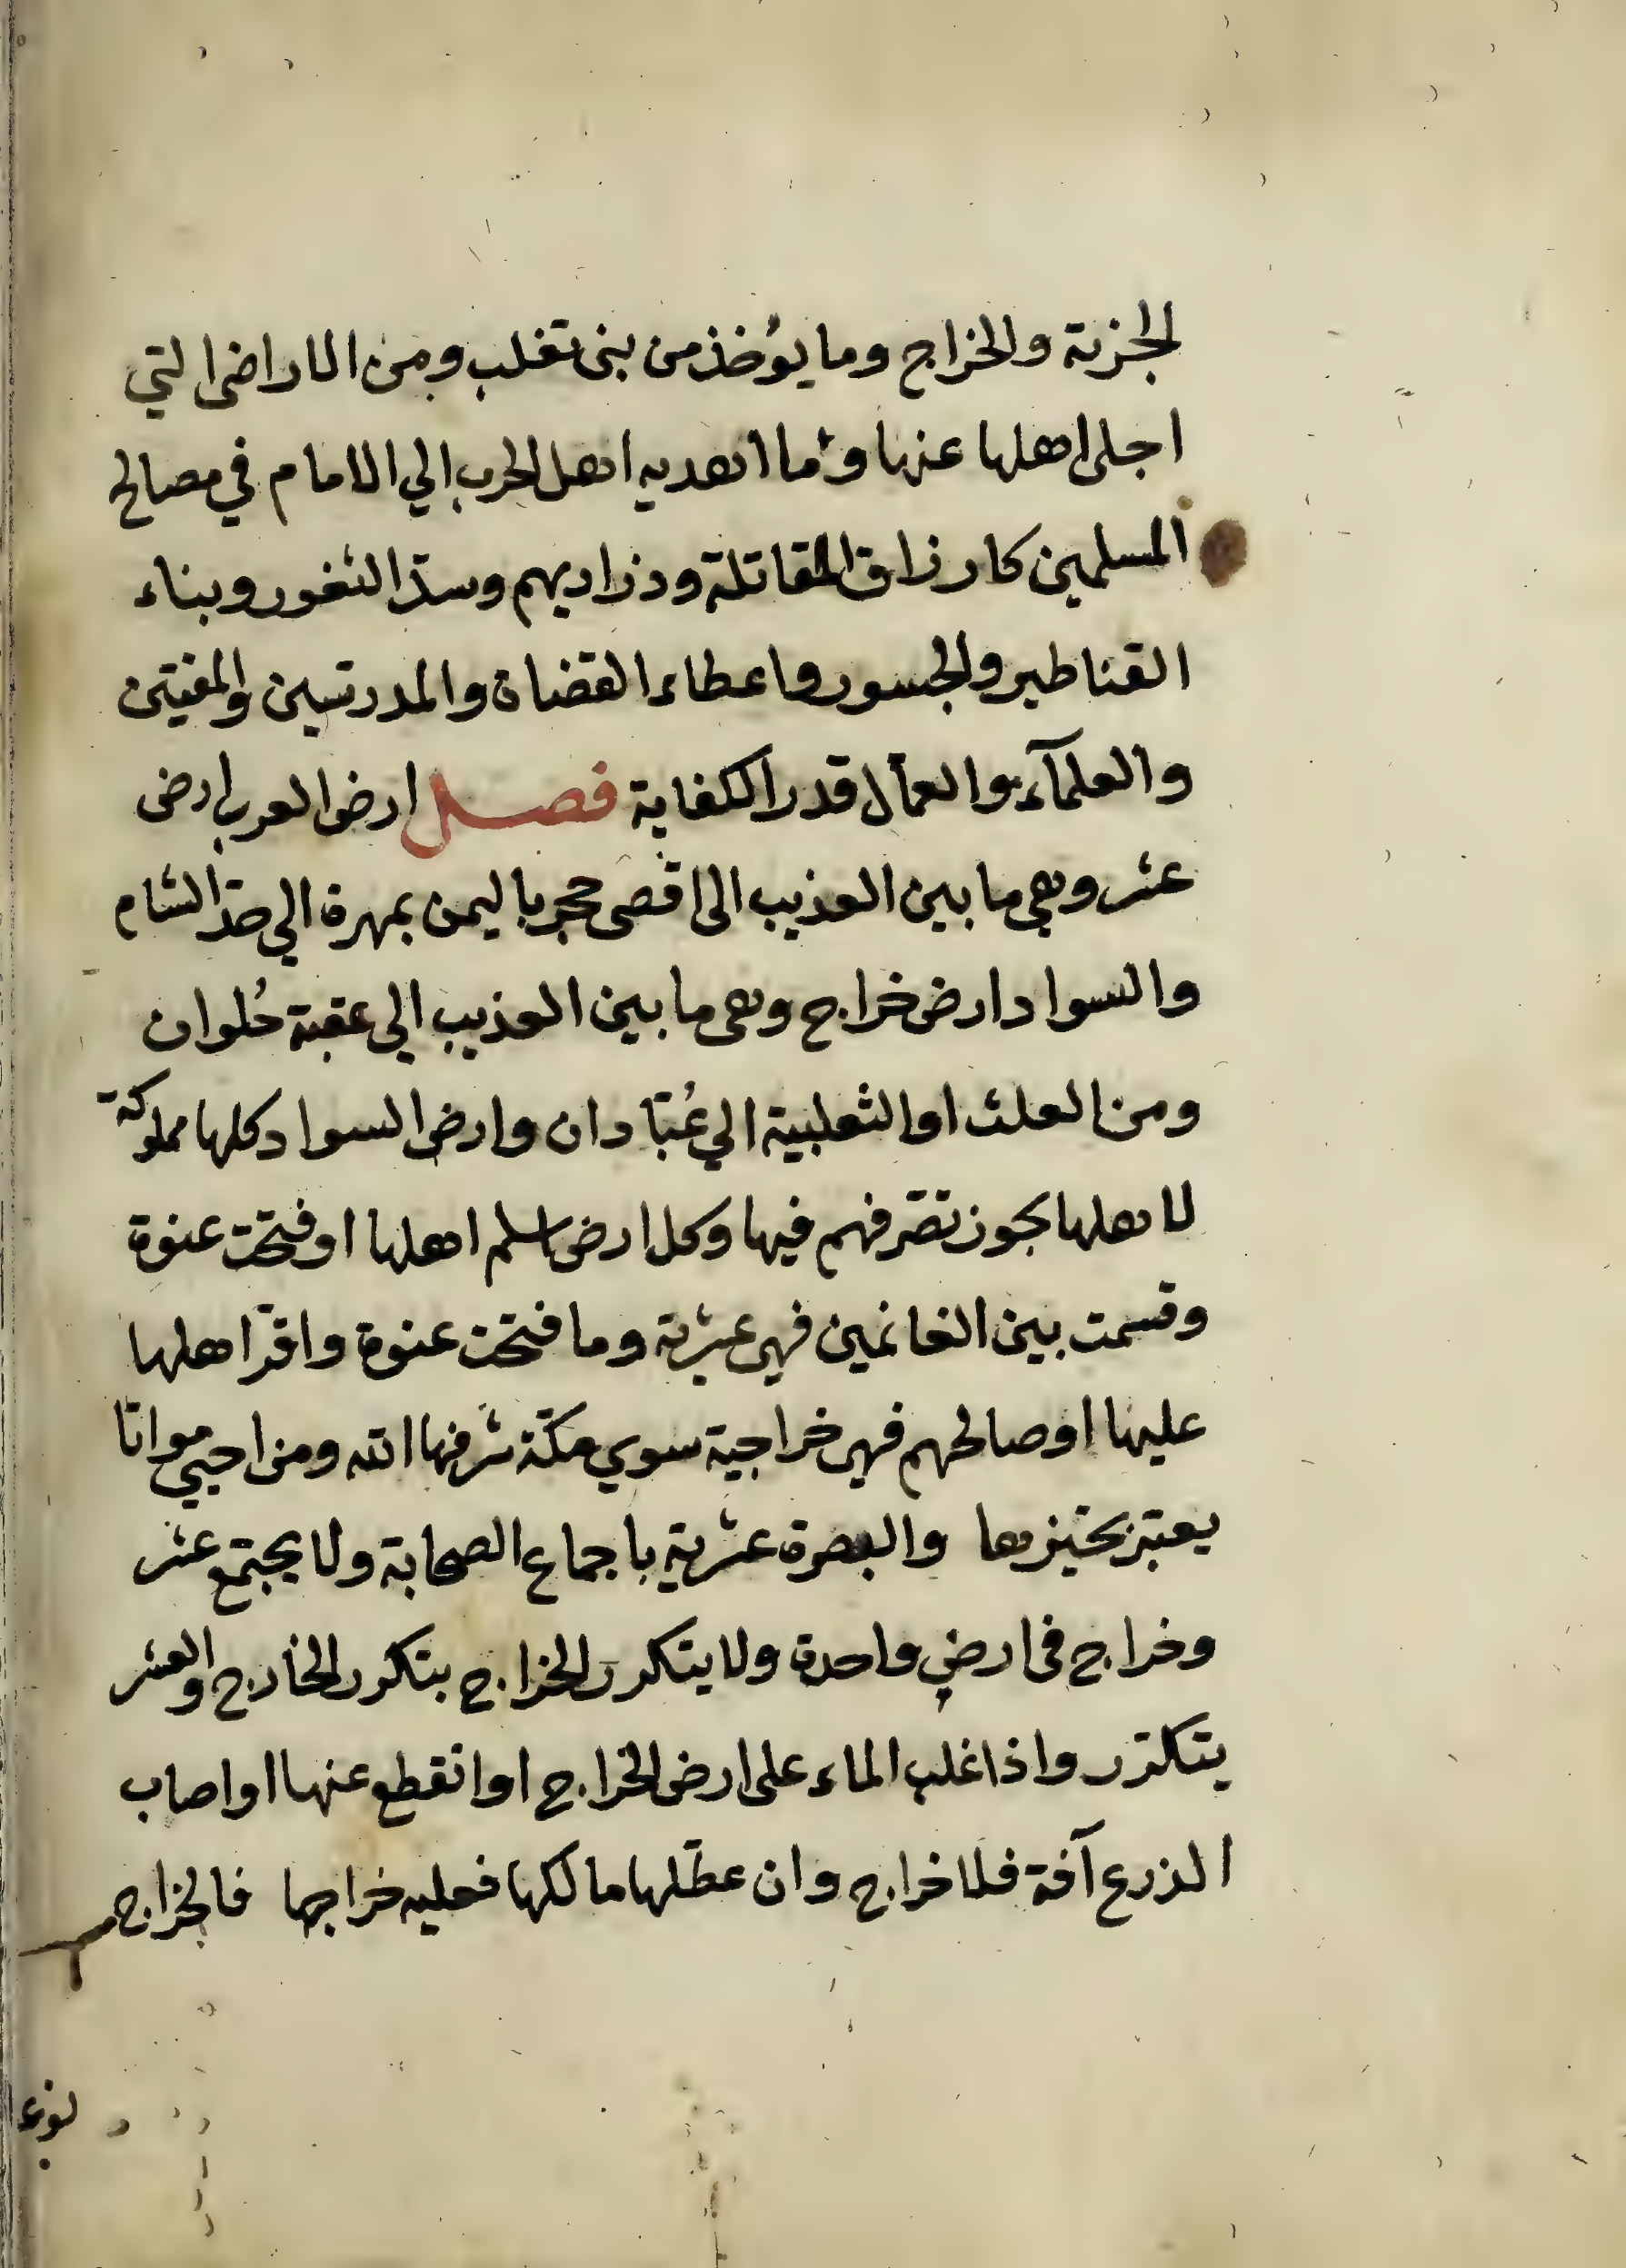 الجزية والخراج وما يؤخذ من بني تغلب ومن الاراضى التي
اجلى اهلها عنها وما اهديه اهل الحرب الي الامام في مصالح
المسلمين كارزاق المقاتلة وذراريهم وسدّ الثغور وبناء
القناطير والجسور واعطاء القضاة والمدرّسين والمفتين
والعلمآء والعمال قدر الكفاية فصل ارض العرب ارض
عشر وهي ما بين العذيب الى اقصى حجر باليمن بمهرة الي حدّ الشام
والسواد ارض خراج وهى ما بين العذيب الي عقبة حُلوان
ومن العلث او الثعلبية الي عُبّادان وارض السواد كلها مملوكة
لاهلها يجوز تصّرفهم فيها وكل ارض اسلم اهلها او فتحت عنوة
وقسمت بين الغانمين فهى عشرية وما فتحت عنوة واقرّ اهلها
عليها او صالحهم فهى خراجية سوي مكّة شرفها الله ومن احيي مواتا
يعتبر بحيزها والبصرة عشرية باجماع الصحابة ولا يجتمع عشر
وخراج فى ارض واحدة ولا يتكرر الخراج بتكرر الخارج والعشر
يتكرّر واذا غلب الماء على ارض الخراج او انقطع عنها او اصاب
الزرع آفة فلا خراج وان عطّلها مالكها فعليه خراجها فالخراج
نوع